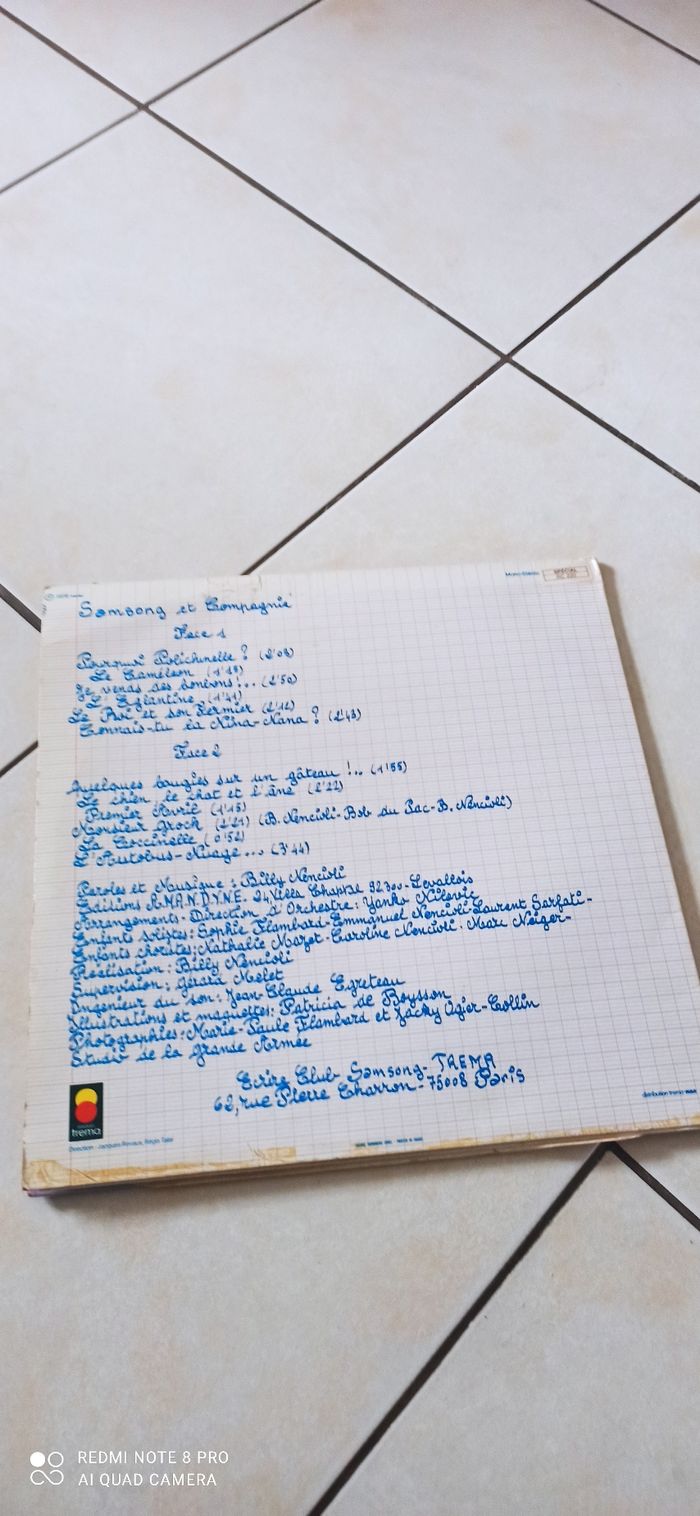 Mono-Stéréo
SPÉCIAL
Samsong et Compagnie
Face 1
Pourquoi Polichinelle ? (2'08)
Le Caméléon (1'19)
Je vends des bonbons !.. (2'50)
L'Eglantine (1'41)
Le Roi et son Fermier (2'12)
Connais-tu la Nina-Nana ? (2'43)
Face 2
Quelques bougies sur un gâteau !.. (1'55)
Le chien, le chat et l'âne (2'22)
Premier Avril (1'15)
Monsieur Grock (2'21) (B. Nencioli-Bob du Pac-B. Nencioli)
La Coccinelle (0'52)
L'Autobus-Nuage... (3'44)
Paroles et Musique : Billy Nencioli
Editions A.M.A.N.D.Y.N.E. 24 Villa Chaptal 92300-Levallois
Arrangements-Direction d'Orchestre : Yanko Nilovic
Enfants solistes : Sophie Flambard-Emmanuel Nencioli-Laurent Sarfati-
Enfants choristes : Nathalie Mazot-Caroline Nencioli. Marc Neiger-
Réalisation : Billy Nencioli
Supervision : Gérard Melet
Ingenieur du son : Jean-Claude Egreteau
Illustrations et maquettes : Patricia de Boysson
Photographies : Marie-Paule Flambard et Jacky Ogier-Collin
Studio de la Grande Armée
Ecrire Club Samsong-TREMA
62, rue Pierre Charron-75008 Paris
trema
Direction : Jacques Revaux, Régis Talar
distribution trema
REDMI NOTE 8 PRO
AI QUAD CAMERA